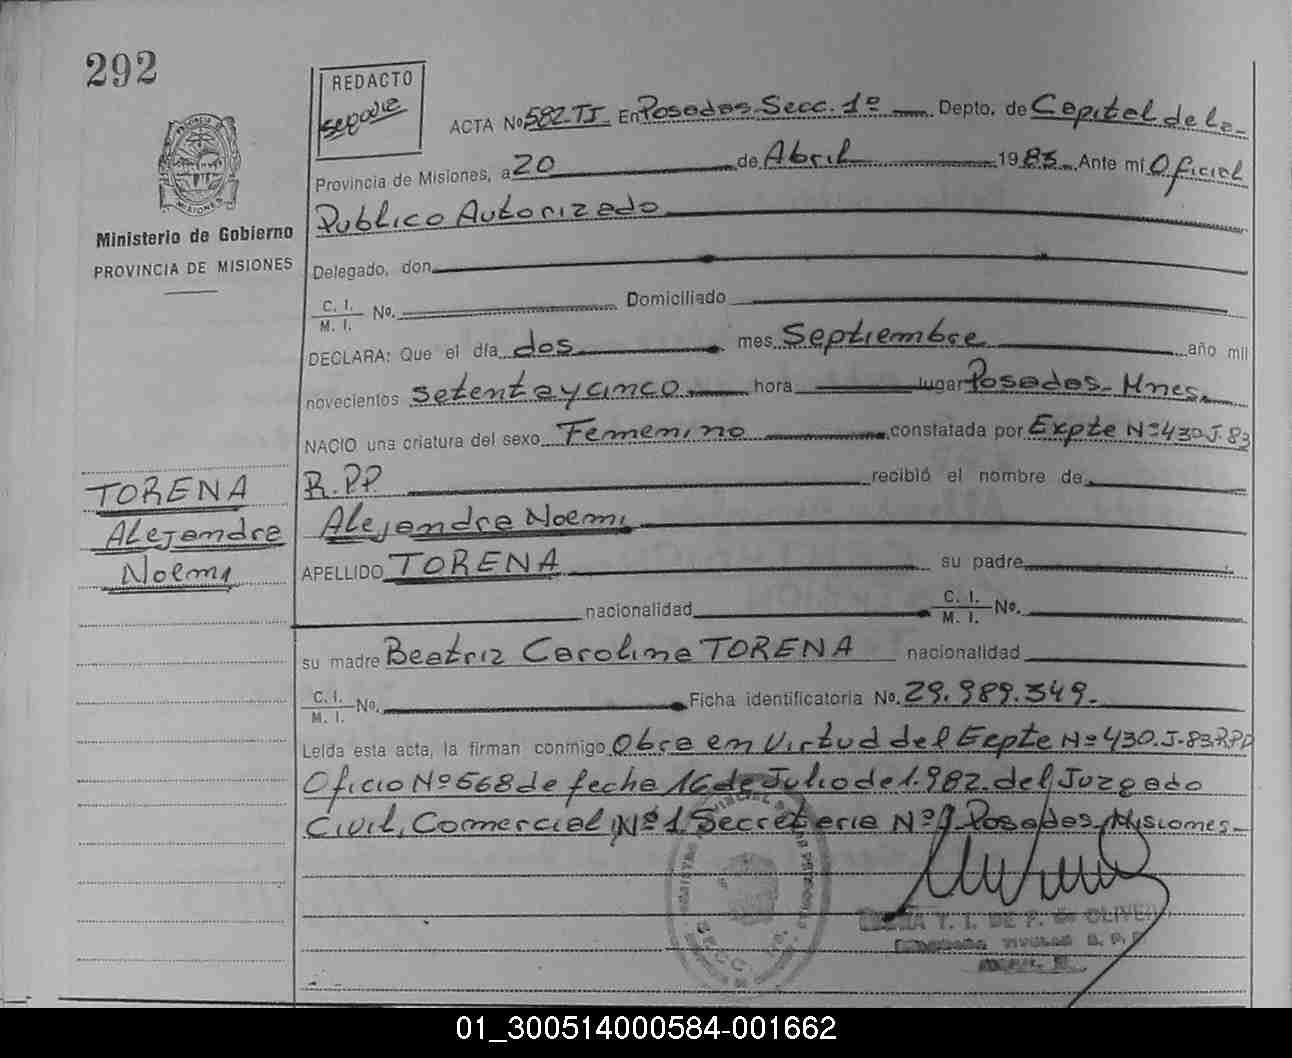 292
REDACTO
ACTA No 582-TI- En Posadas Secc. 1º Depto. de Capital de la
Provincia de Misiones, a 20 de Abril 1983 Ante mi Oficial
Publico Autorizado
Ministerio de Gobierno
PROVINCIA DE MISIONES
Delegado, don
C. I. No. Domiciliado
M. I.
DECLARA: Que el día dos mes Septiembre año mil
novecientos setenta y cinco hora lugar Posadas - Mnes.
NACIO una criatura del sexo Femenino constatada por Expte Nº 430-J-83
R.PP. recibió el nombre de
Alejandra Noemi
APELLIDO TORENA su padre
TORENA
Alejandra
Noemi
nacionalidad C. I. No.
M. I.
su madre Beatriz Carolina TORENA nacionalidad
C. I. No. Ficha identificatoria No. 29.989.349.-
M. I.
Leída esta acta, la firman conmigo Obra en Virtud del Expte Nº 430-J-83 RPP
Oficio Nº 668 de fecha 16 de Julio de 1.982. del Juzgado
Civil, Comercial Nº 1 Secretaria Nº 1 Posadas, Misiones-
01_300514000584-001662